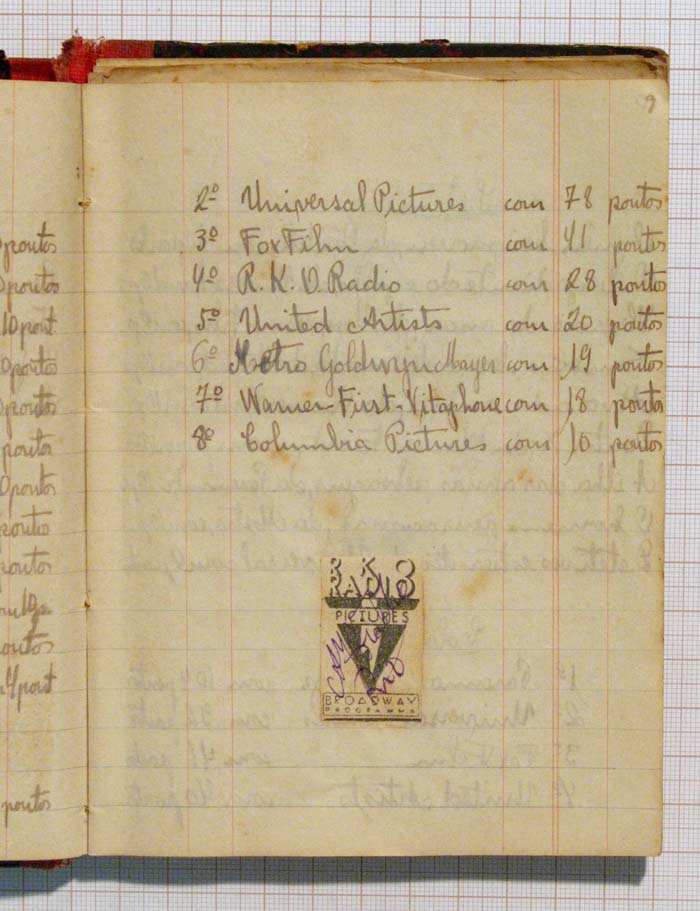 9
pontos
pontos
10 pont
pontos
pontos
pontos
pontos
pontos
pontos
pontos
pont
pontos
2º Universal Pictures com 78 pontos
3º Fox Film com 41 pontos
4º R. K. O. Radio com 28 pontos
5º United Artists com 20 pontos
6º Metro Goldwyn Mayer com 19 pontos
7º Warner-First-Vitaphone com 18 pontos
8º Columbia Pictures com 10 pontos
RKO
RADIO
PICTURES
BROADWAY
PROGRAMMA